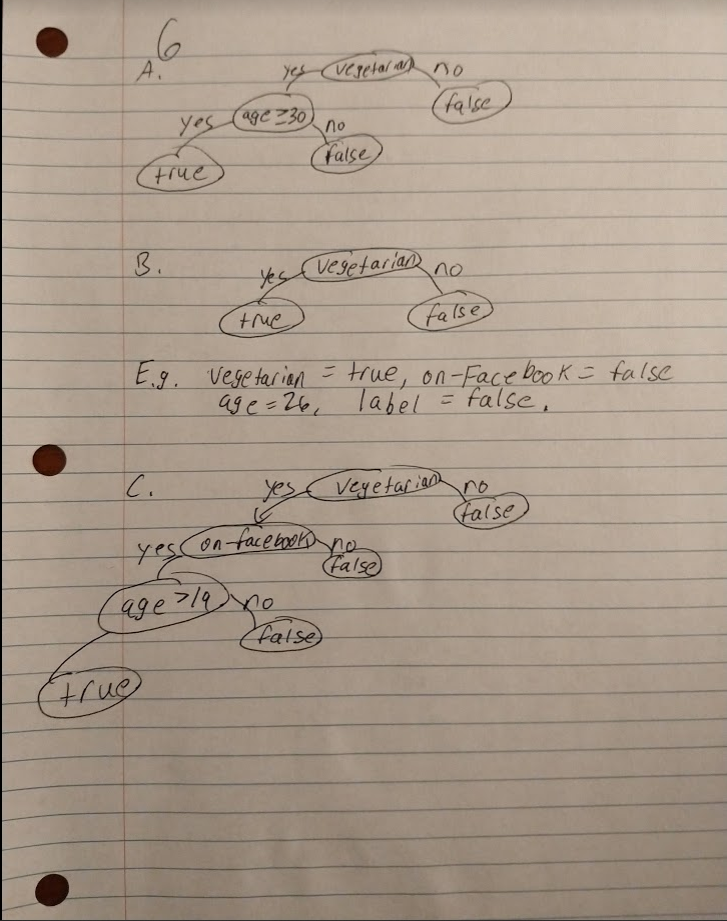 6
A.
yes vegetarian no
false
yes age ≥30 no
true false
B.
yes vegetarian no
true false
E.g. vegetarian = true, on-Facebook = false
age = 26, label = false.
C.
yes vegetarian no
false
yes on-facebook no
false
age >19 no
false
true